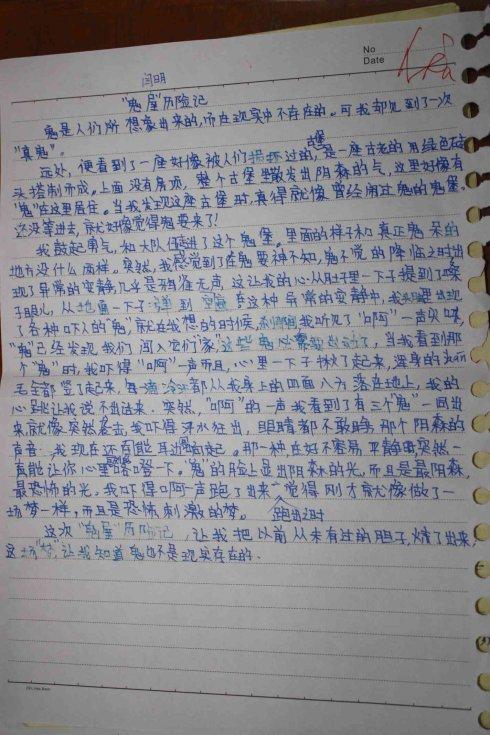 No
Date
闫明
"鬼屋"历险记
鬼是人们所想象出来的,而在现实中不存在的。可我却见到了一次
"真鬼"。
远处,便看到了一座好像被人们损坏过的,古堡是一座古老的用绿色砖
头搭制而成。上面没有房顶,整个古堡散发出阴森的气,这里好像有
"鬼"在这里居住。当我发现这座古堡时,真得就像曾经闹过鬼的鬼堡。
还没等进去,就好像觉得鬼要来了!
我鼓起勇气,和大队伍进了这个鬼堡。里面的样子和真正鬼呆的
地方没什么两样。突然,我感觉到了在鬼要神不知,鬼不觉的降临之时出
现了异常的安静,几乎是鸦雀无声,这让我的心从肚子里一下子提到了嗓
子眼儿,从地面一下子到在这种异常的安静中,我头脑里出现
了各种吓人的"鬼"就在我想的时候,刹那间我听见了"啊"一声尖叫,
"鬼"已经发现我们闯入它们家,这些鬼出动了,当我看到那
个"鬼"时,我吓得"啊"一声而且,心里一下子揪了起来,浑身的han
毛全都竖了起来,每一滴冷汗都从我身上的四面八方落在地上,我的
心到让我说不出话来。突然,"啊"的一声我看到了有三个"鬼"一同出
来,就像突然袭击,我吓得汗水狂出,眼睛都不敢睁,那个阴森的
声音,我现在还有能耳边响起。那一种,在好不容易平静时,突然一
真能让你心里咯噔一下。"鬼"的脸上显出阴森的光,而且是最阴森,
最恐怖的光。我吓得"啊"一声跑了出来,觉得刚才就像做了一
场梦一样,而且是恐怖刺激的梦。跑出之时
这次"鬼屋"历险记,让我把以前从未有过的胆子,练了出来,
这场"梦",让我知道鬼也不是现实存在的.